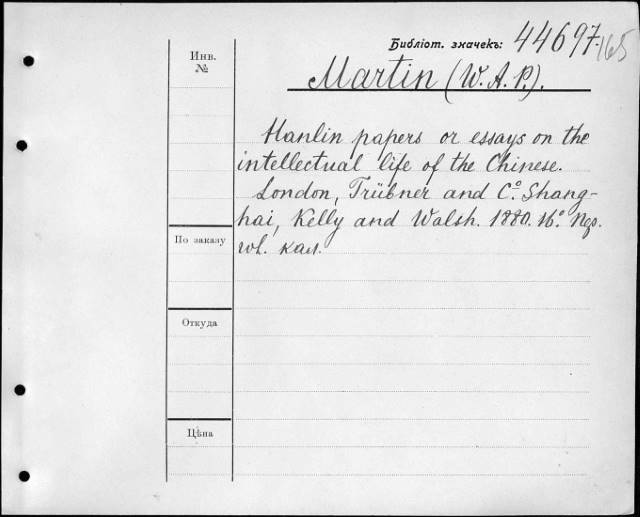 Библіот. значекъ: 44697. 165
Инв.
№
Martin (W. A. P.).
Hanlin papers or essays on the
intellectual life of the Chinese.
London, Trübner and C.º Shang-
hai, Kelly and Walsh. 1880. 16.º Пер.
По заказу
кал.
Откуда
Цѣна